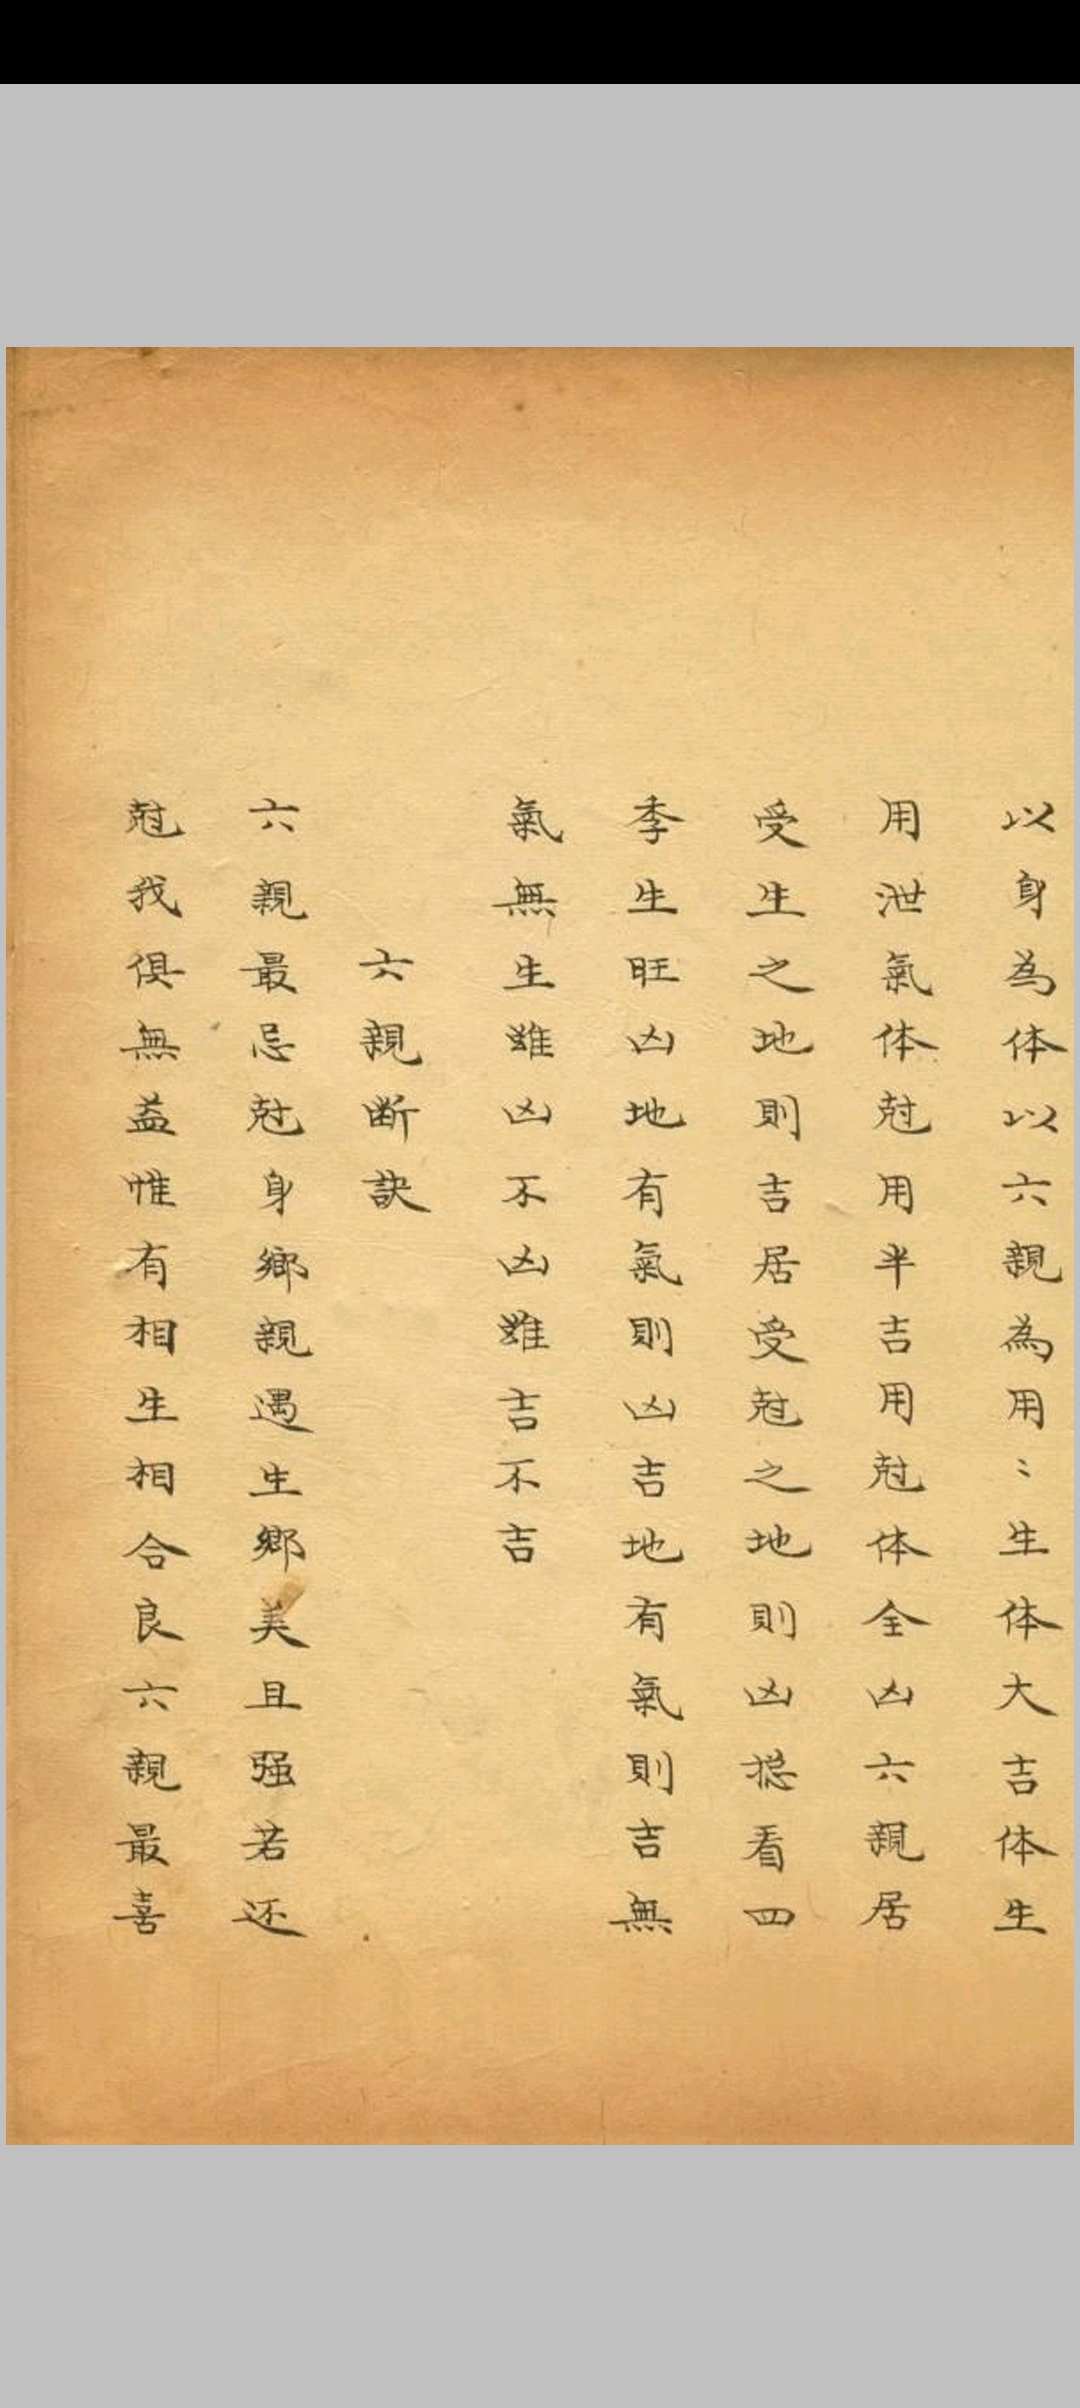 以身為体以六親為用〻生体大吉体生
用泄氣体尅用半吉用尅体全凶六親居
受生之地則吉居受尅之地則凶揔看四
季生旺凶地有氣則凶吉地有氣則吉無
氣無生雖凶不凶雖吉不吉
六親断訣
六親最忌尅身鄉親遇生鄉美且强若还
尅我俱無益惟有相生相合良六親最喜